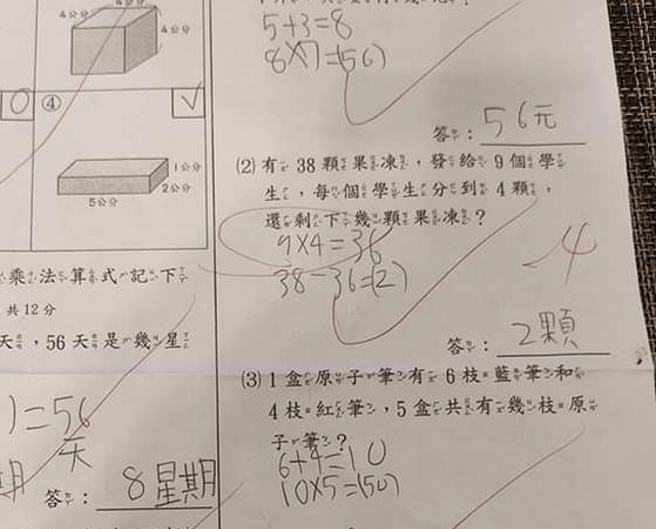 4公分
4公分
○
④
✓
1公分
2公分
5公分
乘法算式記下
共12分
天，56天是幾星
)=56
天
期
答：8星期
5+3=8
8×7=(56)
答：56元
(2)有38顆果凍，發給9個學
生，每個學生分到4顆，
還剩下幾顆果凍？
9×4=36
38-36=(2)
-4
答：2顆
(3)1盒原子筆有6枝藍筆和
4枝紅筆，5盒共有幾枝原
子筆？
6+4=10
10×5=(50)